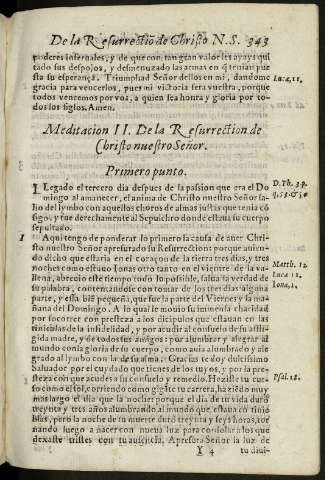 De la Resurrectiō de Christo N.S. 343
poderes infernales, y de que con tan gran valor les ayays qui
tado sus despojos, y desmenuzado las armas en q̃ tenian pue
sta su esperança. Triumphad Señor dellos en mi, dandome
gracia para vencerlos, pues mi victoria sera vuestra, porque
todos vencemos por vos, a quien sea honra y gloria por to-
dos los siglos. Amen.
Luca, 11.
Meditacion II. De la Resurrection de
Christo nuestro Señor.
Primero punto.
LLegado el tercero dia despues de la passion que era el Do
mingo al amanecer, el anima de Christo nuestro Señor sa-
lio del lymbo con aquellos choros de almas justas que tenia cō
sigo, y fue derechamente al Sepulchro donde estaua su cuerpo
sepultado.
D. Th. 3. p.
q. 53. & 54
1 Aqui tengo de ponderar lo primero la causa de auer Chri-
sto nuestro Señor apresurado su Resurreccion: porque auien-
do dicho que estaria en el coraçon de la tierra tres dias, y tres
noches como estuuo Ionas otro tanto en el vientre de la va-
llena, abreuio este tiempo todo lo possible, salua la verdad de
su palabra, contentandose con tomar de los tres dias alguna
parte, y essa biē pequeña, que fue la parte del Viernes y la ma-
ñana del Domingo. A lo qual le mouio su immensa charidad
por socorrer con presteza a los dicipulos que estauan en las
tinieblas de la infidelidad, y por acudir al consuelo de su affli-
gida madre, y de todos sus amigos: por alumbrar y alegrar al
mundo con la gloria de su cuerpo, como auia alumbrado y ale
grado al lymbo con la de su alma. Gracias te doy dulcissimo
Saluador por el cuydado que tienes de los tuyos, y por la pre-
steza con que acudes a su consuelo y remedio. Heziste tu cur-
so como el Sol, corriendo como gigāte tu carrera, haziēdo muy
mas largo el dia que la noche: porque el dia de tu vida duró
treynta y tres años alumbrando al mundo que estaua en tinie
blas, pero la noche de tu muerte duró treynta y seys horas, tor
nando luego a nacer con nueua luz para consolar a los que
dexaste tristes con tu ausencia. Apresura Señor la luz de
Matth. 12.
Luca 11.
Iona, 2.
Psal. 18.
Y 4 tu diui-